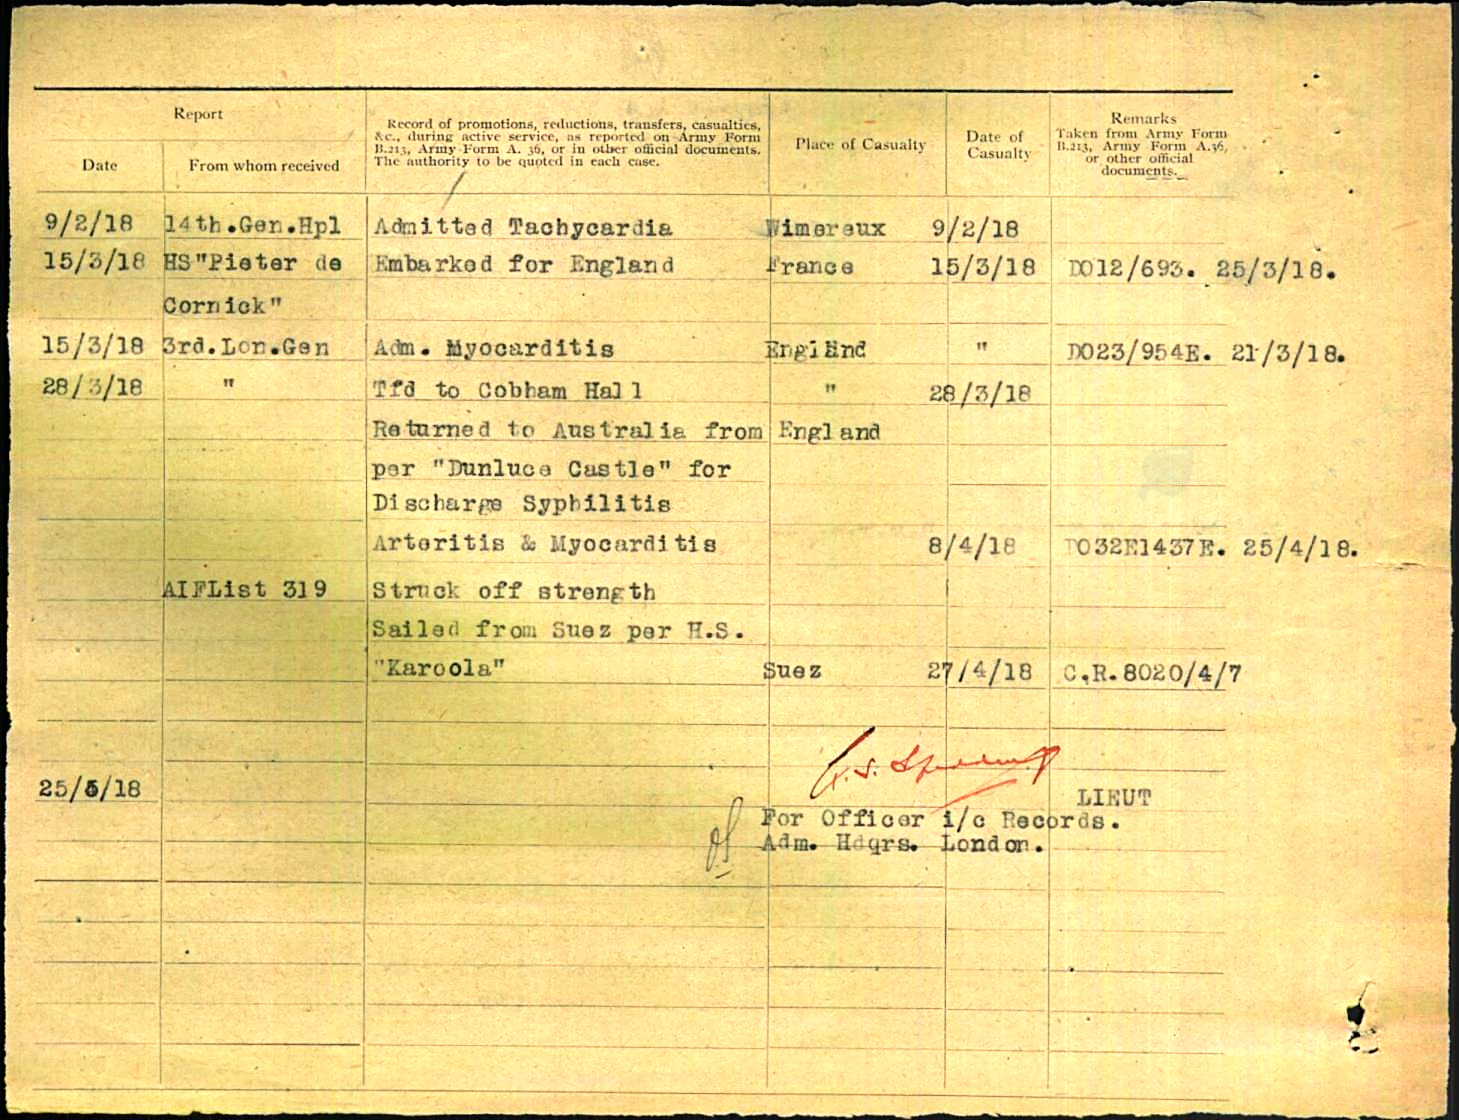 Report
Record of promotions, reductions, transfers, casualties,
&c., during active service, as reported on Army Form
B.213, Army Form A. 36, or in other official documents.
The authority to be quoted in each case.
Place of Casualty
Date of
Casualty
Remarks
Taken from Army Form
B.213, Army Form A.36,
or other official
documents.
Date
From whom received
9/2/18 14th.Gen.Hpl Admitted Tachycardia Wimereux 9/2/18
15/3/18 HS"Pieter de Embarked for England France 15/3/18 DO12/693. 25/3/18.
Cornick"
15/3/18 3rd.Lon.Gen Adm. Myocarditis England " DO23/954E. 21/3/18.
28/3/18 " Tfd to Cobham Hall " 28/3/18
Returned to Australia from England
per "Dunluce Castle" for
Discharge Syphilitis
Arteritis & Myocarditis 8/4/18 DO32E1437E. 25/4/18.
AIFList 319 Struck off strength
Sailed from Suez per H.S.
"Karoola" Suez 27/4/18 C.R.8020/4/7
25/5/18
LIEUT
For Officer i/c Records.
Adm. Hdqrs. London.